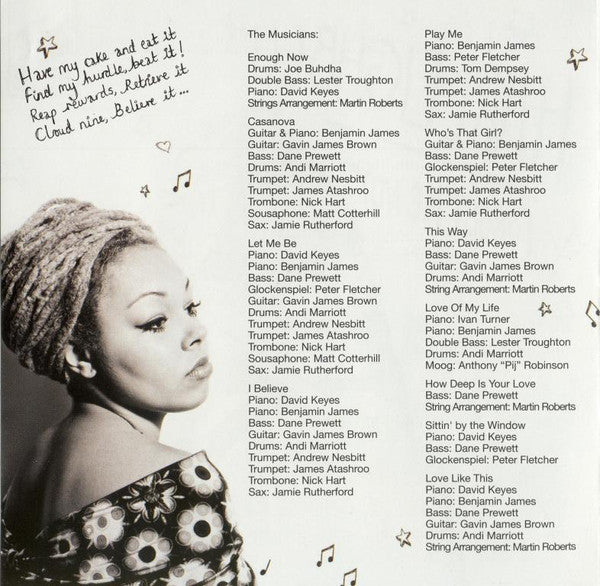 Have my cake and eat it
find my hurdle, beat it!
Reap rewards, Retrieve it
Cloud nine, Believe it...
The Musicians:
Enough Now
Drums: Joe Buhdha
Double Bass: Lester Troughton
Piano: David Keyes
Strings Arrangement: Martin Roberts
Casanova
Guitar & Piano: Benjamin James
Guitar: Gavin James Brown
Bass: Dane Prewett
Drums: Andi Marriott
Trumpet: Andrew Nesbitt
Trumpet: James Atashroo
Trombone: Nick Hart
Sousaphone: Matt Cotterhill
Sax: Jamie Rutherford
Let Me Be
Piano: David Keyes
Piano: Benjamin James
Bass: Dane Prewett
Glockenspiel: Peter Fletcher
Guitar: Gavin James Brown
Drums: Andi Marriott
Trumpet: Andrew Nesbitt
Trumpet: James Atashroo
Trombone: Nick Hart
Sousaphone: Matt Cotterhill
Sax: Jamie Rutherford
I Believe
Piano: David Keyes
Piano: Benjamin James
Bass: Dane Prewett
Guitar: Gavin James Brown
Drums: Andi Marriott
Trumpet: Andrew Nesbitt
Trumpet: James Atashroo
Trombone: Nick Hart
Sax: Jamie Rutherford
Play Me
Piano: Benjamin James
Bass: Peter Fletcher
Drums: Tom Dempsey
Trumpet: Andrew Nesbitt
Trumpet: James Atashroo
Trombone: Nick Hart
Sax: Jamie Rutherford
Who's That Girl?
Guitar & Piano: Benjamin James
Bass: Dane Prewett
Glockenspiel: Peter Fletcher
Trumpet: Andrew Nesbitt
Trumpet: James Atashroo
Trombone: Nick Hart
Sax: Jamie Rutherford
This Way
Piano: David Keyes
Bass: Dane Prewett
Guitar: Gavin James Brown
Drums: Andi Marriott
String Arrangement: Martin Roberts
Love Of My Life
Piano: Ivan Turner
Piano: Benjamin James
Double Bass: Lester Troughton
Drums: Andi Marriott
Moog: Anthony “Pij” Robinson
How Deep Is Your Love
Bass: Dane Prewett
String Arrangement: Martin Roberts
Sittin' by the Window
Piano: David Keyes
Bass: Dane Prewett
Glockenspiel: Peter Fletcher
Love Like This
Piano: David Keyes
Piano: Benjamin James
Bass: Dane Prewett
Guitar: Gavin James Brown
Drums: Andi Marriott
String Arrangement: Martin Roberts